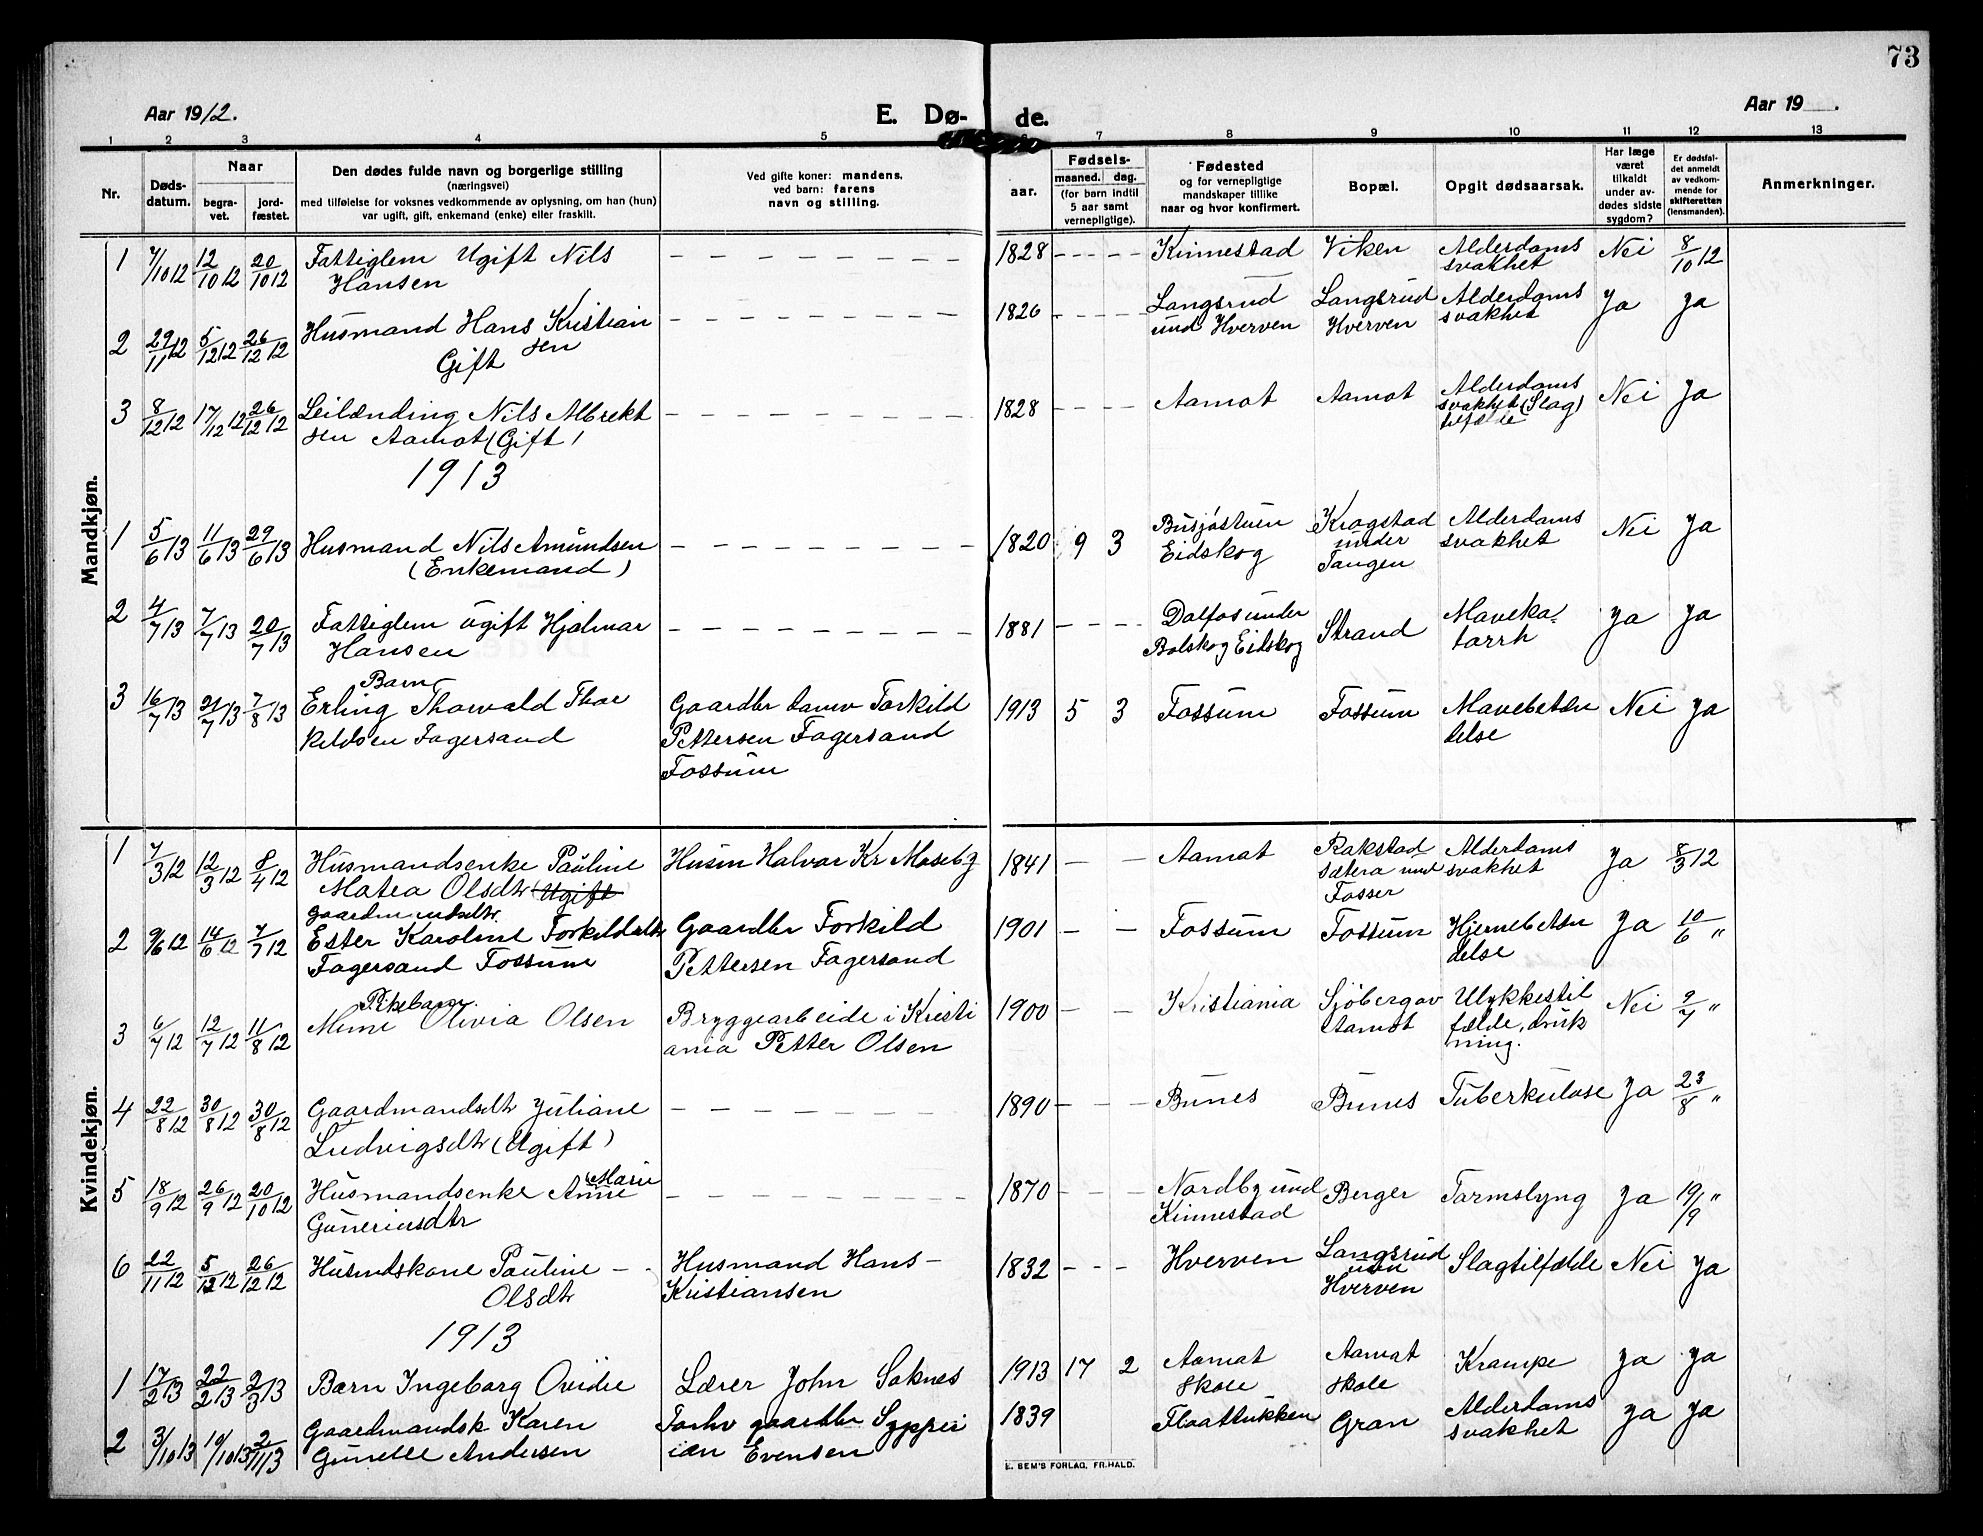 73
Aar 1912. E. Dø- de. Aar 19 .
1 2 3 4 5 7 8 9 10 11 12 13
Nr.
Døds-
datum.
Naar
begra-
vet.
jord-
fæstet.
Den dødes fulde navn og borgerlige stilling
(næringsvei)
med tilføielse for voksnes vedkommende av oplysning, om han (hun)
var ugift, gift, enkemand (enke) eller fraskilt.
Ved gifte koner: mandens.
ved barn: farens
navn og stilling.
aar.
Fødsels-
maaned. dag.
(for barn indtil
5 aar samt
vernepligtige).
Fødested
og for vernepligtige
mandskaper tillike
naar og hvor konfirmert.
Bopæl.
Opgit dødsaarsak.
Har læge
været
tilkaldt
under av-
dødes sidste
sygdom?
Er dødsfal-
det anmeldt
av vedkom-
mende for
skifteretten
(lensmanden).
Anmerkninger.
Mandkjøn.
1 7/10 12 12/10 12 20/10 12 Fattiglem Ugift Nils - - - - - - - - 1828 - - - - - Kinnestad Viken Alderdoms Nei 8/10 12
Hansen svakhet
2 29/11 12 5/12 12 26/12 12 Husmand Hans Kristian - - - - - - - - 1826 - - - - Langsrud Langsrud Alderdoms Ja Ja
sen und Hverven Hverven svakhet
Gift
3 8/12 12 17/12 12 26/12 12 Leilænding Nils Albrekt - - - - - - - - 1828 - - - - Aamot Aamot Alderdoms Nei Ja
sen Aamot (Gift) svakhet (Slag)
tilfælde
1913
1 5/6 13 11/6 13 29/6 13 Husmand Nils Amundsen - - - - - - - - 1820 9 3 Busjøstuen Krogstad Alderdoms Nei Ja
(Enkemand) Eidskog under svakhet
Tangen
2 4/7 13 7/7 13 20/7 13 Fattiglem ugift Hjalmar - - - - - - - - 1881 - - - - Dalfos under Strand Maveka- Ja Ja
Hansen Bolskog Eidskog tarrh
Barn
3 16/7 13 21/7 13 7/8 13 Erling Thorvald Thor Gaardbr Torkild 1913 5 3 Fossum Fossum Mavebetæn Nei Ja
kildsen Fagersand Pettersen Fagersand delse
Fossum
Kvindekjøn.
1 7/3 12 12/3 12 8/4 12 Husmandsenke Pauline Husm Halvor Kr Moseby 1841 - - Aamot Rakstad Alderdoms Ja 8/3 12
Matea Olsdtr Ugift sætera und svakhet
Fosser
2 9/6 12 14/6 12 7/7 12 Ester Karoline Torkildsdtr Gaardbr Torkild 1901 - - Fossum Fossum Hjernebetæn Ja 10/6 "
Fagersand Fossum Pettersen Fagersand delse
Pikebarn.
3 6/7 12 12/7 12 11/8 12 Olivia Olsen Bryggearbeide i Kristi 1900 - - Kristiania Sjøbergav Ulykkestil Nei 9/7 "
ania Petter Olsen Aamot fælde, druk
ning.
4 22/8 12 30/8 12 30/8 12 Gaardmandsdtr Juliane - - - - - - - - 1890 - - - Bunes Bunes Tuberkulose Ja 23/8 "
Ludvigsdtr (Ugift)
5 18/9 12 26/9 12 20/10 12 Husmandsenke Anne Marie - - - - - - - - 1870 - - - Nordby und Berger Tarmslyng Ja 19/9 "
Guneriusdtr Kinnestad
6 22/11 12 5/12 12 26/12 12 Husmdskone Pauline - - Husmand Hans - 1832 - - - Hverven Langsrud Slagtilfælde Nei Ja
Olsdtr Kristiansen und
Hverven
1913
1 17/2 13 22/2 13 2/3 13 Barn Ingeborg Ovidie Lærer John Soknes 1913 17 2 Aamot Aamot Krampe Ja Ja
skole skole
2 3/10 13 10/10 13 2/11 13 Gaardmandsk Karen Forhv gaardbr Syppri 1839 Flaatlukken Gran Alderdoms Ja Ja
Gunelle Andersen ian Evensen svakhet
E. SEM'S FORLAG, FR.HALD.